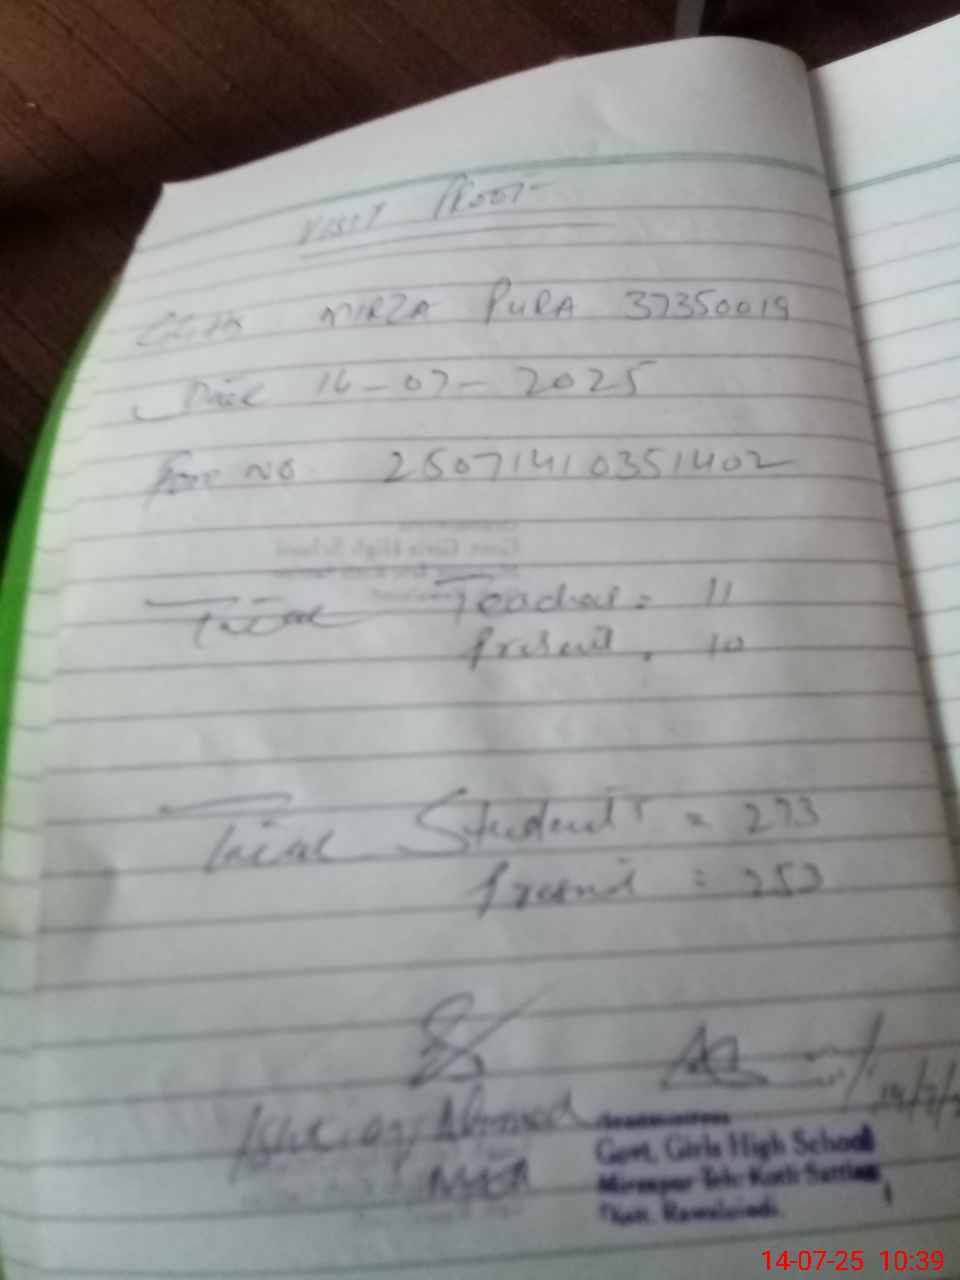 VISIT PROOF
MIRZA PURA 37350019
Date 14-07-2025
Form NO 25071410351402
Total Teacher = 11
Present . 10
Total Students = 273
Present = 253
Ahmed
MEA
Headmistress
Govt. Girls High School
Mirzapur Teh: Kotli Sattian
Rawalpindi.
14-07-25 10:39